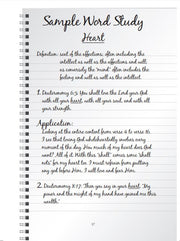 Sample Word Study
Heart
Definition: seat of the affections, often including the
intellect as well as the affections and will,
as conversely the "mind" often includes the
feeling and will as well as the intellect.
1. Deuteronomy 6:5 You shall love the Lord your God
with all your heart, with all your soul, and with all
your strength.
Application:
Looking at the entire context from verse 6 to verse 16,
I see that loving God wholeheartedly invades every
moment of the day. How much of my heart does God
want? All of it. With this "shall" comes some "shall
nots" for my heart too. I must refrain from putting
any god before Him. I will love and fear Him.
2. Deuteronomy 8:17 Then you say in your heart, 'My
power and the might of my hand have gained me this
wealth.'